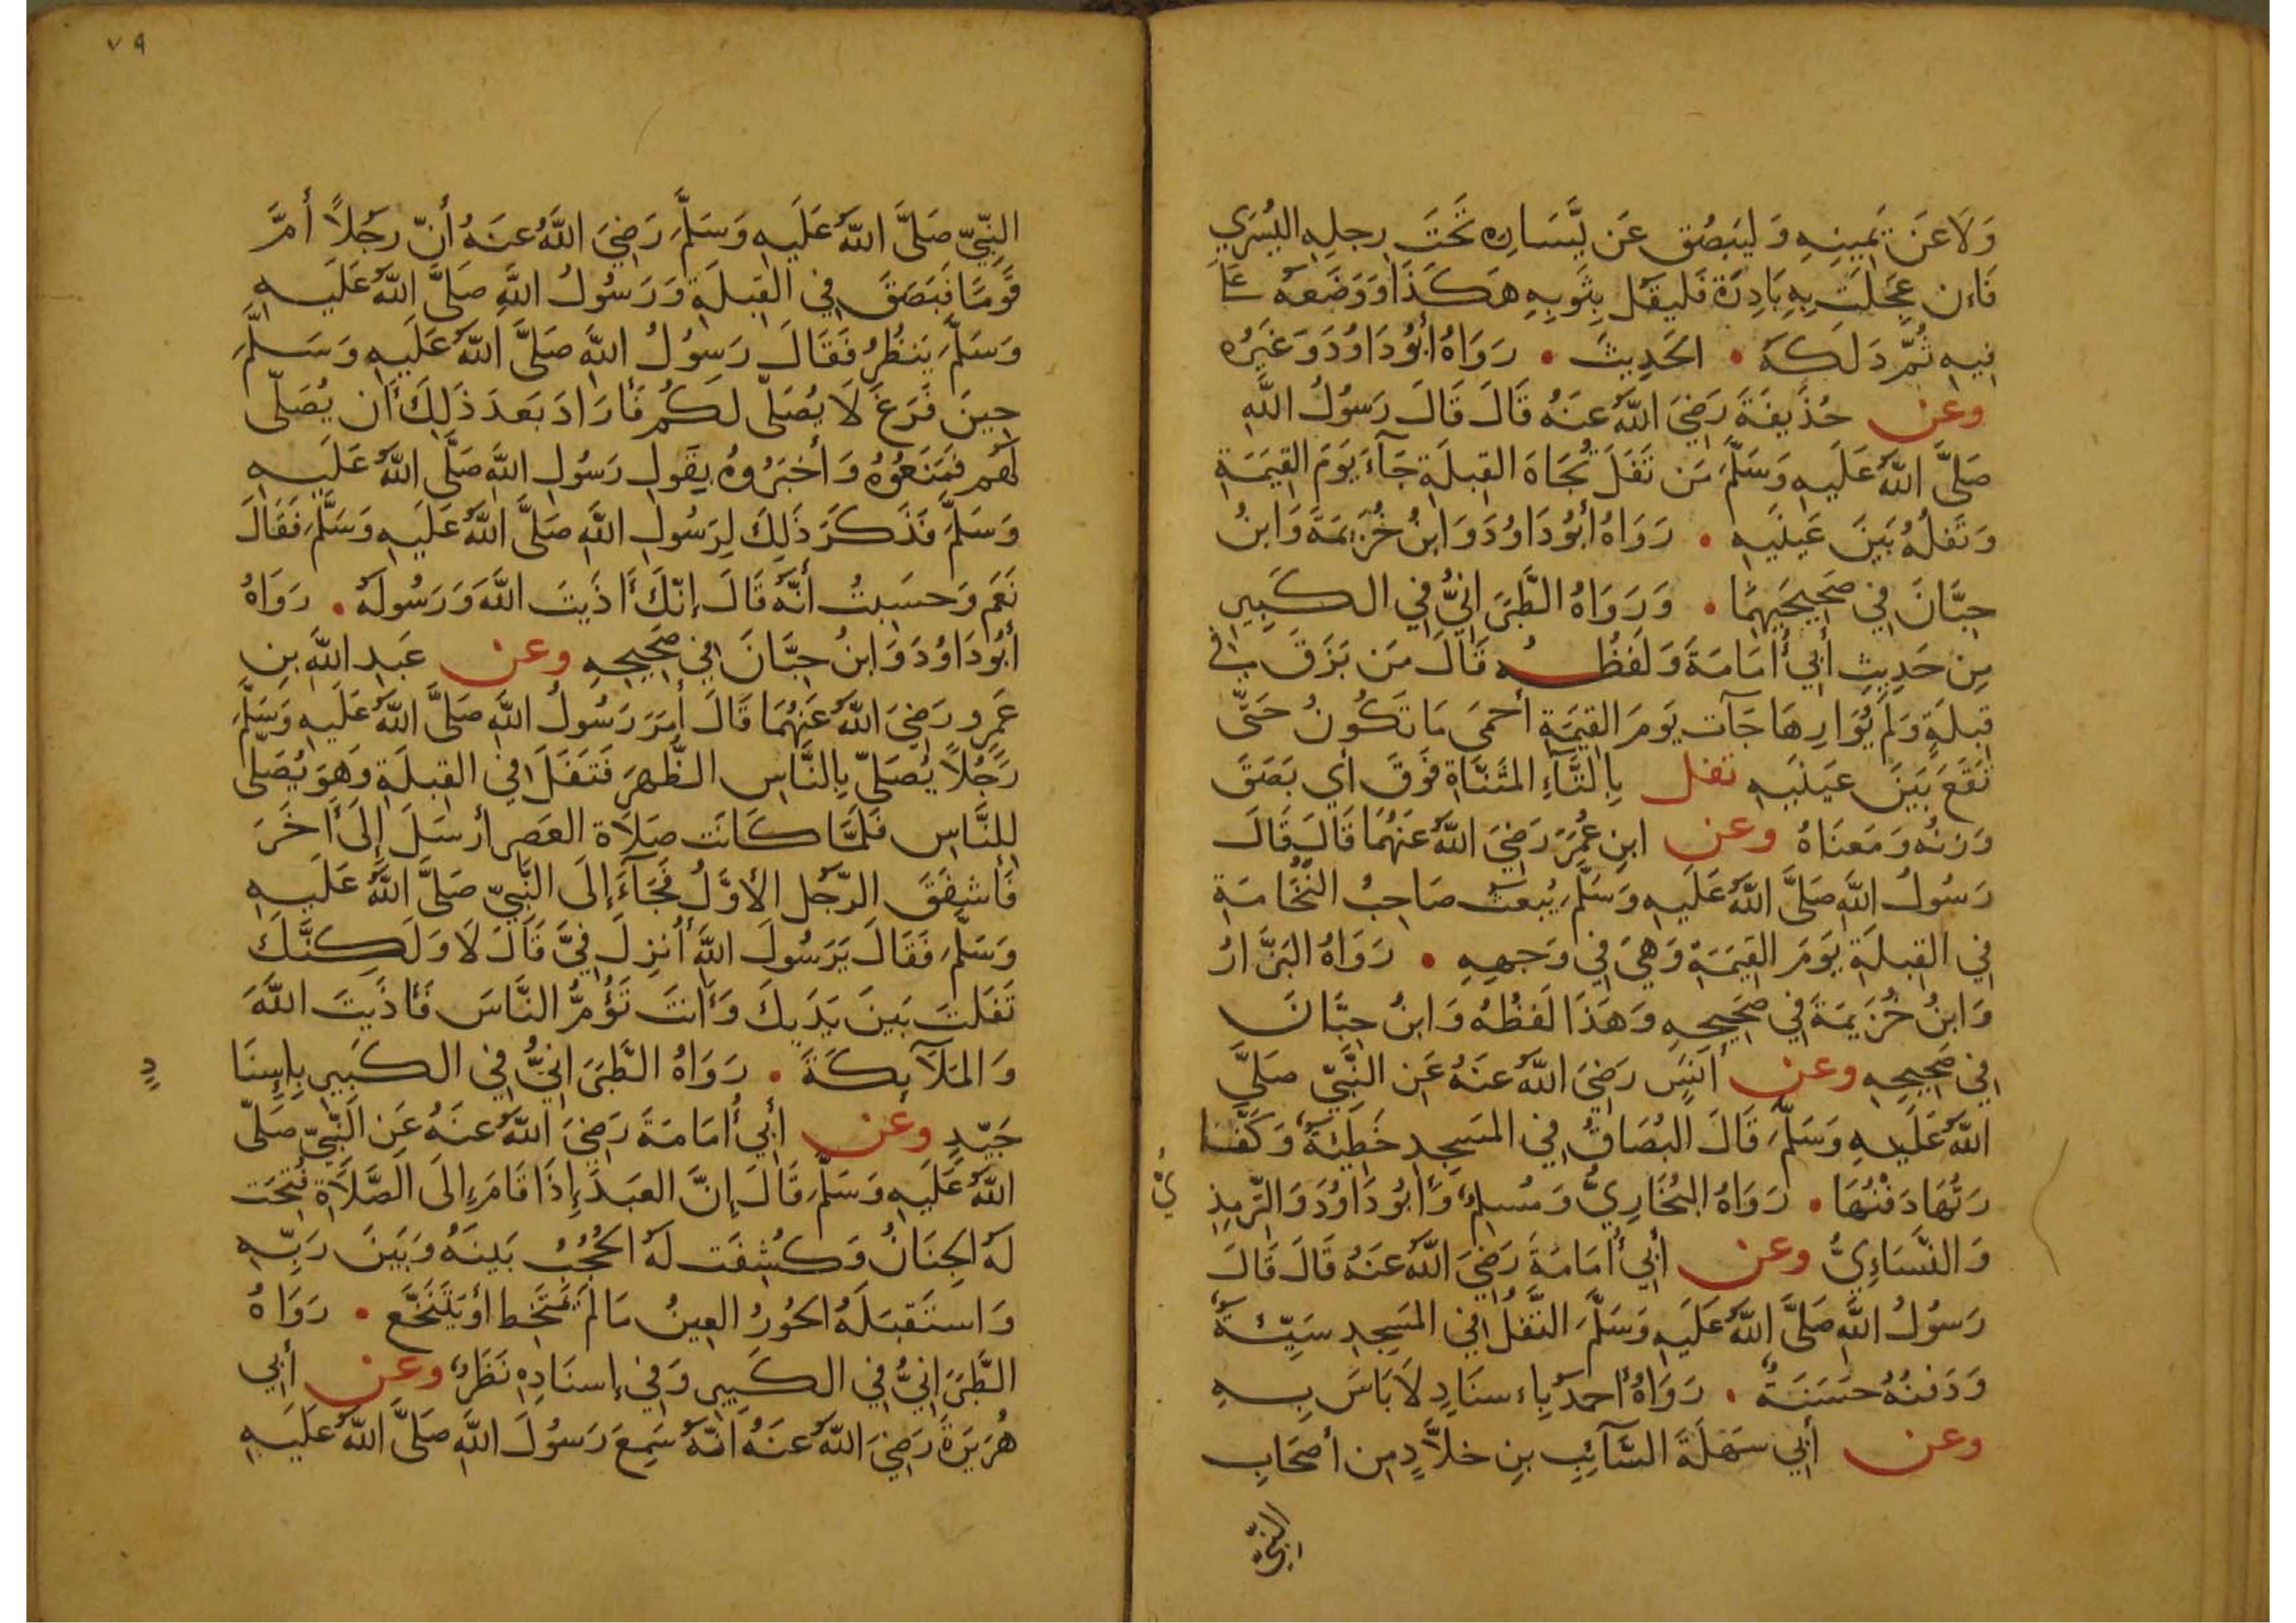 وَلَا عَن يَمِينِهِ وَليَبصُق عَن يَّسَارِهِ تَحتَ رِجلِهِ اليُسرَي
فَاِن عَجِلَت بِهِ بَادِرَة فَليَقُل بِثَوبِهِ هَكَذَا وَوَضَعَهُ عَلَى
فِيهِ ثُمَّ دَلَكَهُ • الحَدِيثَ • رَوَاهُ أَبُو دَاوُدَ وَغَيرُه
وعن حُذَيفَةَ رَضِيَ اللَّهُ عَنهُ قَالَ قَالَ رَسُولُ اللَّهِ
صَلَّى اللَّهُ عَلَيهِ وَسَلَّمَ مَن تَفَلَ تُجَاهَ القِبلَةِ جَآءَ يَومَ القِيَمَةِ
وَتَفلُهُ بَينَ عَينَيهِ • رَوَاهُ أَبُو دَاوُدَ وَابنُ خُزَيمَةَ وَابنُ
حِبَّانَ فِي صَحِيحَيهِمَا • وَرَوَاهُ الطَّبَرَانِيُّ فِي الكَبِيرِ
مِن حَدِيثِ أَبِي أُمَامَةَ وَلَفظُه قَالَ مَن بَزَقَ فِي
قِبلَةٍ وَلَم يُوَارِهَا جَآت يَومَ القِيَمَةِ أَحمَى مَا تَكُونُ حَتَّى
تَقَعَ بَينَ عَينَيهِ تفل بِالتَّآءِ المُثَنَّاةِ فَوقُ أَي بَصَقَ
وَزنُه وَمَعنَاهُ وعن ابنِ عُمَرَ رَضِيَ اللَّهُ عَنهُمَا قَالَ قَالَ
رَسُولُ اللَّهِ صَلَّى اللَّهُ عَلَيهِ وَسَلَّمَ يُبعَثُ صَاحِبُ النُّخَامَةِ
فِي القِبلَةِ يَومَ القِيَمَةِ وَهِيَ فِي وَجهِهِ • رَوَاهُ البَزَّارُ
وَابنُ خُزَيمَةَ فِي صَحِيحِهِ وَهَذَا لَفظُهُ وَابنُ حِبَّانَ
فِي صَحِيحِهِ وعن أَنَسٍ رَضِيَ اللَّهُ عَنهُ عَنِ النَّبِيِّ صَلَّى
اللَّهُ عَلَيهِ وَسَلَّمَ قَالَ البُصَاقُ فِي المَسجِدِ خَطِيئَةٌ وَكَفَّا
رَتُهَا دَفنُهَا • رَوَاهُ البُخَارِيُّ وَمُسلِمٌ وَأَبُو دَاوُدَ وَالتِّرمِذِ
يُّ
وَالنَّسَاءِيُّ وعن أَبِي أُمَامَةَ رَضِيَ اللَّهُ عَنهُ قَالَ قَالَ
رَسُولُ اللَّهِ صَلَّى اللَّهُ عَلَيهِ وَسَلَّمَ التَّفلُ فِي المَسجِدِ سَيِّئَةٌ
وَدَفنُهُ حَسَنَةٌ • رَوَاهُ أَحمَدُ بِاِسنَادٍ لَا بَاسَ بِهِ
وعن أَبِي سَهلَةَ السَّآئِبِ بنِ خَلَّادٍ مِن أَصحَابِ
النَّبِيِّ
٧٩
النَّبِيِّ صَلَّى اللَّهُ عَلَيهِ وَسَلَّمَ رَضِيَ اللَّهُ عَنهُ أَنَّ رَجُلًا أَمَّ
قَومًا فَبَصَقَ فِي القِبلَةِ وَرَسُولُ اللَّهِ صَلَّى اللَّهُ عَلَيهِ
وَسَلَّمَ يَنظُرُ فَقَالَ رَسُولُ اللَّهِ صَلَّى اللَّهُ عَلَيهِ وَسَلَّمَ
حِينَ فَرَغَ لَا يُصَلِّى لَكُم فَأَرَادَ بَعدَ ذَلِكَ أَن يُصَلِّى
لَهُم فَمَنَعُوهُ وَأَخبَرُوهُ بِقَولِ رَسُولِ اللَّهِ صَلَّى اللَّهُ عَلَيهِ
وَسَلَّمَ فَذَكَرَ ذَلِكَ لِرَسُولِ اللَّهِ صَلَّى اللَّهُ عَلَيهِ وَسَلَّمَ فَقَالَ
نَعَم وَحَسِبتُ أَنَّهُ قَالَ إِنَّكَ أَذَيتَ اللَّهَ وَرَسُولَهُ • رَوَاهُ
أَبُو دَاوُدَ وَابنُ حِبَّانَ فِي صَحِيحِهِ وعن عَبدِ اللَّهِ بنِ
عَمرٍو رَضِيَ اللَّهُ عَنهُمَا قَالَ أَمَرَ رَسُولُ اللَّهِ صَلَّى اللَّهُ عَلَيهِ وَسَلَّمَ
رَجُلًا يُصَلِّ بِالنَّاسِ الظُّهرَ فَتَفَلَ فِي القِبلَةِ وَهوَ يُصَلِّى
لِلنَّاسِ فَلَمَّا كَانَت صَلَاة العَصرِ أَرسَلَ إِلَى أَخَرَ
فَأَشفَقَ الرَّجُل الأَوَّلُ فَجَآءَ إِلَى النَّبِيِّ صَلَّى اللَّهُ عَلَيهِ
وَسَلَّمَ فَقَالَ يَرَسُولَ اللَّهِ أُنزِلَ فِيَّ قَالَ لَا وَلَكِنَّكَ
تَفَلتَ بَينَ يَدَيكَ وَأَنتَ تَؤُمُّ النَّاسَ فَأَذَيتَ اللَّهَ
وَالمَلَآئِكَةَ • رَوَاهُ الطَّبَرَانِيُّ فِي الكَبِيرِ بِإِسنَا
دٍ
جَيِّدٍ وعن أَبِي أُمَامَةَ رَضِيَ اللَّهُ عَنهُ عَنِ النَّبِيِّ صَلَّى
اللَّهُ عَلَيهِ وَسَلَّمَ قَالَ إِنَّ العَبدَ إِذَا قَامَ إِلَى الصَّلَاةِ فُتِحَت
لَهُ الجِنَانُ وَكُشِفَت لَهُ الحُجُبُ بَينَهُ وَبَينَ رَبِّهِ
وَاستَقبَلَهُ الحُورُ العِينُ مَا لَم يَمتَخِط أَو يَتَنَخَّع • رَوَاهُ
الطَّبَرَانِيُّ فِي الكَبِيرِ وَفِي إِسنَادِهِ نَظَرٌ وعن أَبِي
هُرَيرَةَ رَضِيَ اللَّهُ عَنهُ أَنَّهُ سَمِعَ رَسُولَ اللَّهِ صَلَّى اللَّهُ عَلَيهِ